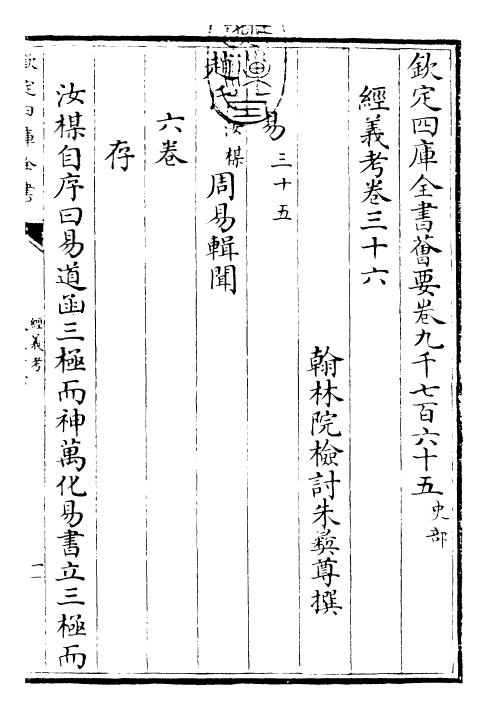 欽定四庫全書薈要卷九千七百六十五 史部
經義考卷三十六
翰林院檢討朱彝尊撰
易 三十五
趙氏 汝楳 周易輯聞
六卷
存
汝楳自序曰易道函三極而神萬化易書立三極而
欽定四庫全書
經義考